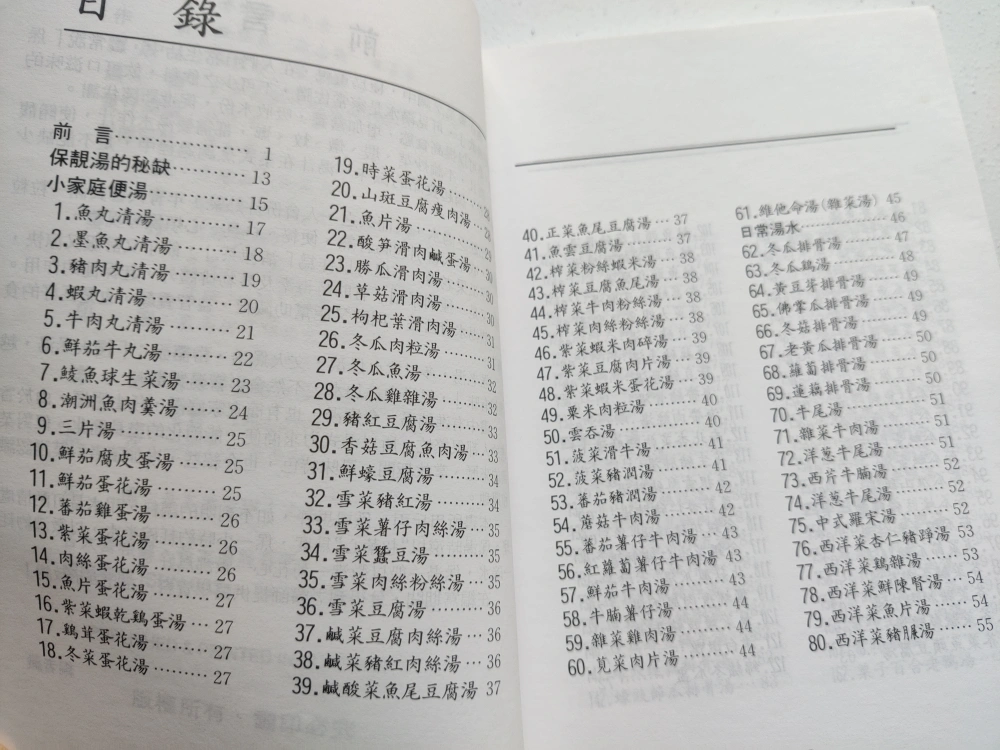 目 錄
前 言……………… 1
保靚湯的秘缺………… 13
小家庭便湯…………… 15
1.魚丸清湯…………… 17
2.墨魚丸清湯………… 18
3.豬肉丸清湯………… 19
4.蝦丸清湯…………… 20
5.牛肉丸清湯………… 21
6.鮮茄牛丸湯………… 22
7.鯪魚球生菜湯……… 23
8.潮洲魚肉羹湯……… 24
9.三片湯……………… 25
10.鮮茄腐皮蛋湯……… 25
11.鮮茄蛋花湯………… 25
12.蕃茄雞蛋湯………… 26
13.紫菜蛋花湯………… 26
14.肉絲蛋花湯………… 26
15.魚片蛋花湯………… 27
16.紫菜蝦乾鷄蛋湯… 27
17.鷄茸蛋花湯………… 27
18.冬菜蛋花湯………… 27
19.時菜蛋花湯………
20.山斑豆腐瘦肉湯…
21.魚片湯……………
22.酸笋滑肉鹹蛋湯… 29
23.勝瓜滑肉湯……… 30
24.草菇滑肉湯……… 30
25.枸杞葉滑肉湯…… 31
26.冬瓜肉粒湯……… 31
27.冬瓜魚湯………… 32
28.冬瓜雞雜湯……… 32
29.豬紅豆腐湯……… 33
30.香菇豆腐魚肉湯… 33
31.鮮蠔豆腐湯……… 34
32.雪菜豬紅湯……… 34
33.雪菜薯仔肉絲湯… 35
34.雪菜蠶豆湯……… 35
35.雪菜肉絲粉絲湯… 35
36.雪菜豆腐湯……… 36
37.鹹菜豆腐肉絲湯… 36
38.鹹菜豬紅肉絲湯… 36
39.鹹酸菜魚尾豆腐湯 37
40.正菜魚尾豆腐湯… 37
41.魚雲豆腐湯……… 37
42.榨菜粉絲蝦米湯… 38
43.榨菜豆腐魚尾湯… 38
44.榨菜牛肉粉絲湯… 38
45.榨菜肉絲粉絲湯… 38
46.紫菜蝦米肉碎湯… 39
47.紫菜豆腐肉片湯… 39
48.紫菜蝦米蛋花湯… 39
49.粟米肉粒湯……… 40
50.雲吞湯…………… 40
51.菠菜滑牛湯……… 41
52.菠菜豬潤湯……… 41
53.蕃茄豬潤湯……… 42
54.蘑菇牛肉湯……… 42
55.蕃茄薯仔牛肉湯… 43
56.紅蘿蔔薯仔牛肉湯 43
57.鮮茄牛肉湯……… 43
58.牛腩薯仔湯……… 44
59.雜菜雞肉湯……… 44
60.莧菜肉片湯……… 44
61.維他命湯(雜菜湯) 45
日常湯水…………… 46
62.冬瓜排骨湯……… 47
63.冬瓜鷄湯………… 48
64.黃豆芽排骨湯…… 49
65.佛掌瓜排骨湯…… 49
66.冬菇排骨湯……… 49
67.老黃瓜排骨湯…… 50
68.蘿蔔排骨湯……… 50
69.蓮藕排骨湯……… 50
70.牛尾湯…………… 51
71.雜菜牛肉湯……… 51
72.洋葱牛尾湯……… 51
73.西芹牛腩湯……… 52
74.洋葱牛尾湯……… 52
75.中式羅宋湯……… 52
76.西洋菜杏仁豬踭湯 53
77.西洋菜鷄雜湯…… 53
78.西洋菜鮮陳腎湯… 54
79.西洋菜魚片湯…… 54
80.西洋菜豬𦟌湯…… 55